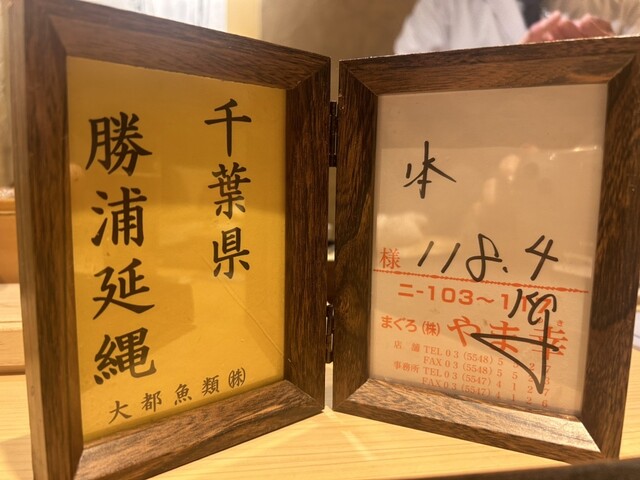 千葉県
勝浦延縄
大都魚類㈱
本
様 118.4
まぐろ㈱ やま幸
店舗 TEL 03 (5548) 5
FAX 03 (5548) 5
事務所 TEL 03 (5547) 4
FAX 03 (5547) 4